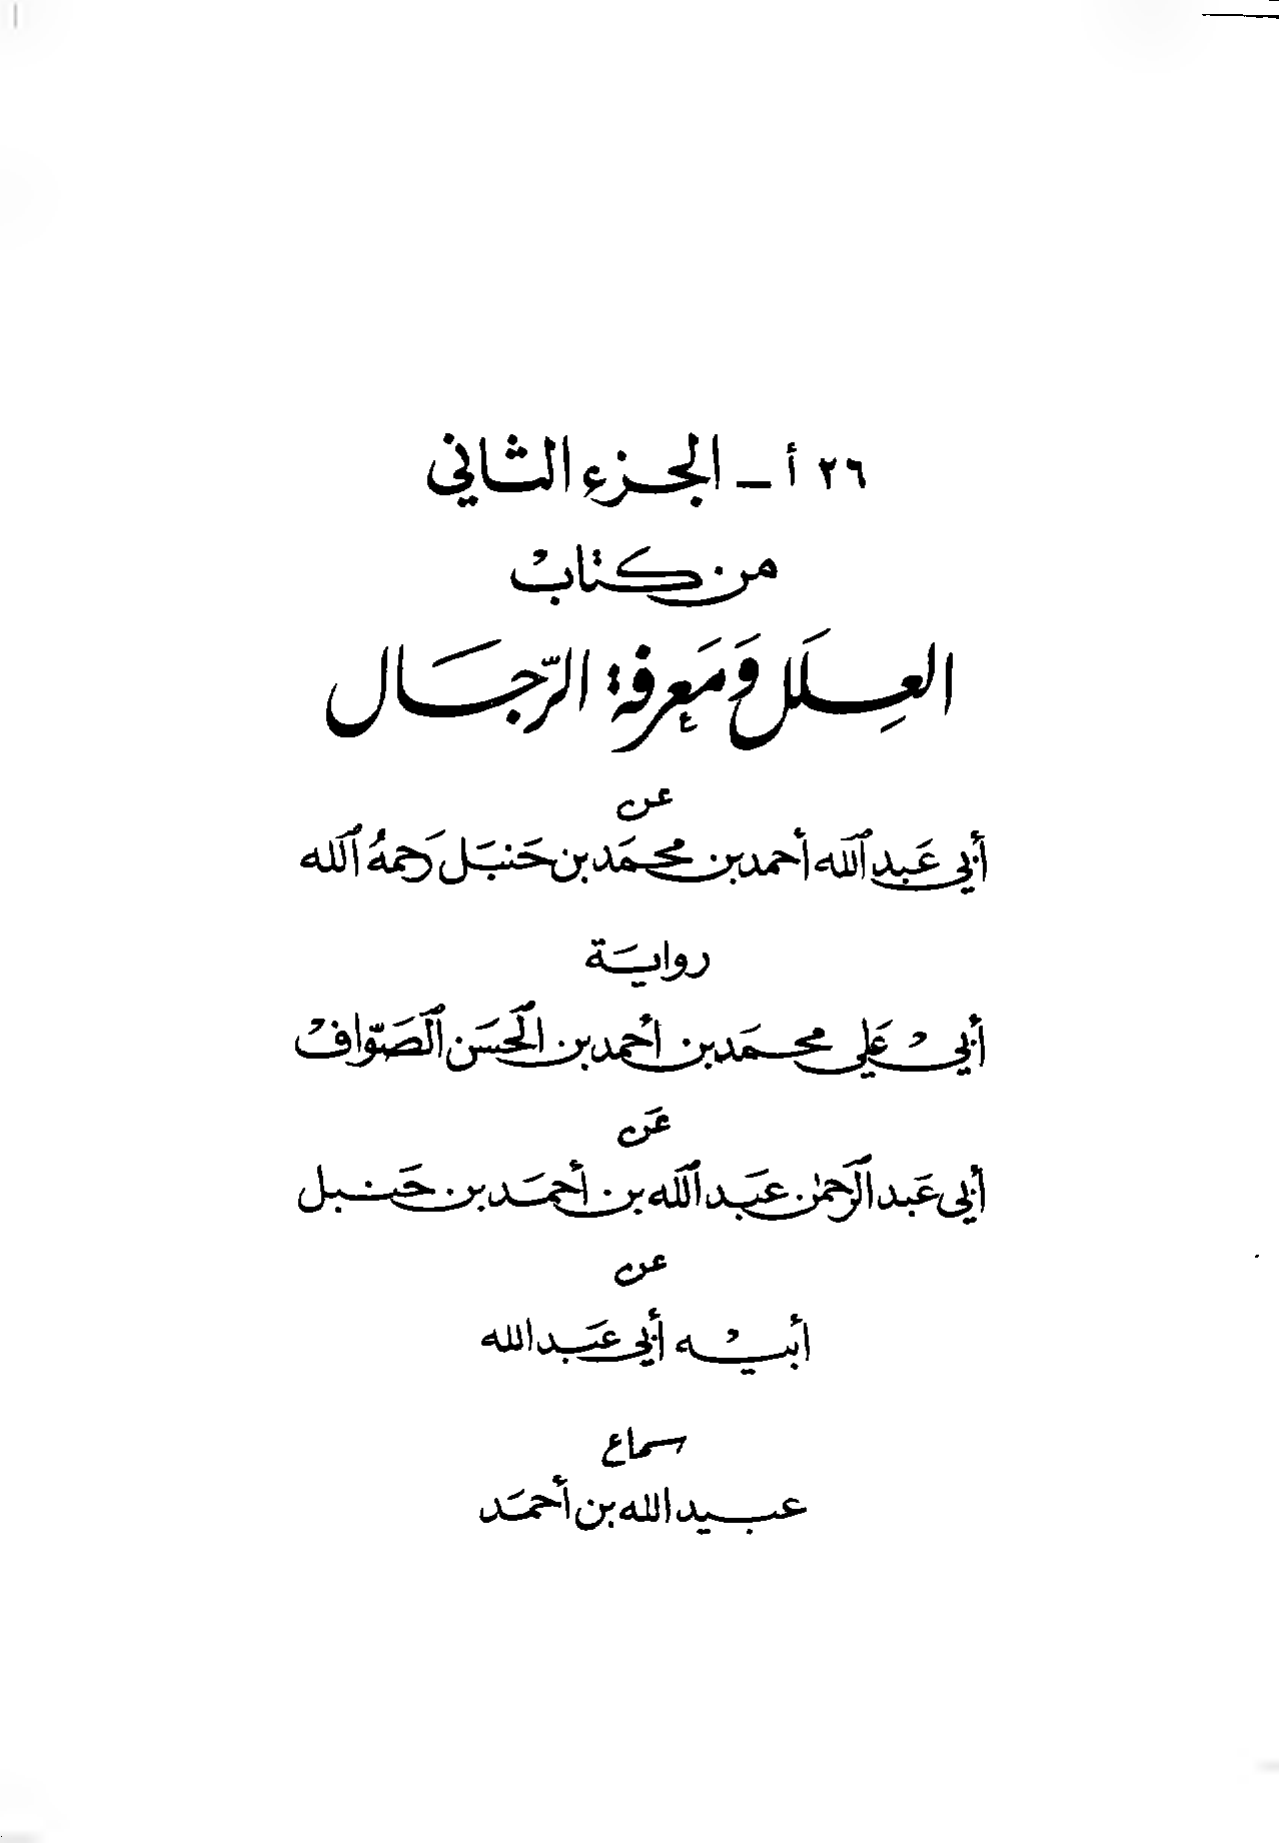 ٢٦ أ - الجزء الثاني
من كتاب
العِلَل وَمَعرِفة الرّجَال
عن
أبي عَبد الله أحمد بن محمَّد بن حَنبَل رَحمهُ الله
روايَة
أبي عَلي محمَّد بن أحمد بن الحسَن الصَوّاف
عَن
أبي عَبد الرحمٰن عبَد الله بن أحمَد بن حَنبل
عن
أبيه أبي عبَد الله
سماع
عبيد الله بن أحمَد